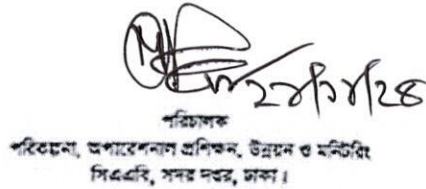 ২৮/১২/২৪
পরিচালক
পরিকল্পনা, অপারেশনাল প্রশিক্ষণ, উন্নয়ন ও মনিটরিং
সিএএবি, সদর দপ্তর, ঢাকা।